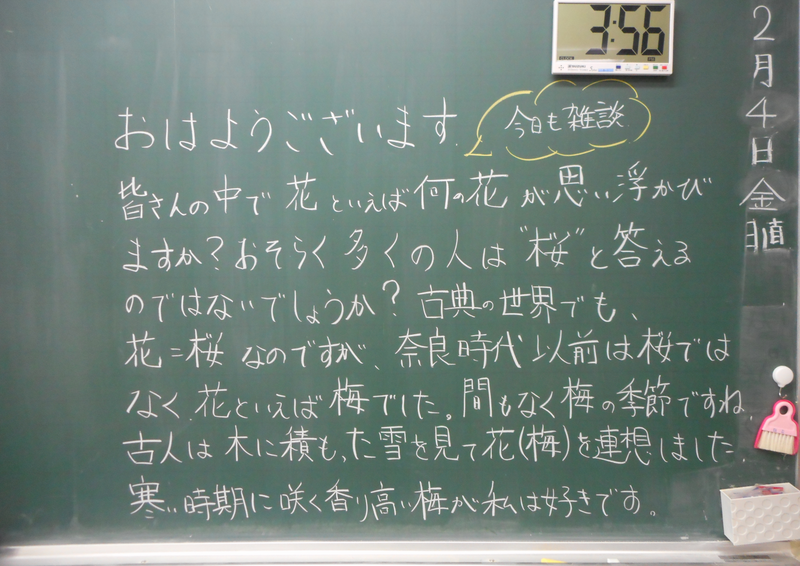 3:56
おはようございます.
今日も雑談
皆さんの中で花といえば何の花が思い浮かび
ますか?おそらく多くの人は"桜"と答える
のではないでしょうか?古典の世界でも、
花=桜なのですが、奈良時代以前は桜では
なく花といえば梅でした。間もなく梅の季節ですね.
古人は木に積もった雪を見て花(梅)を連想しました
寒い時期に咲く香り高い梅が私は好きです。
2月4日金